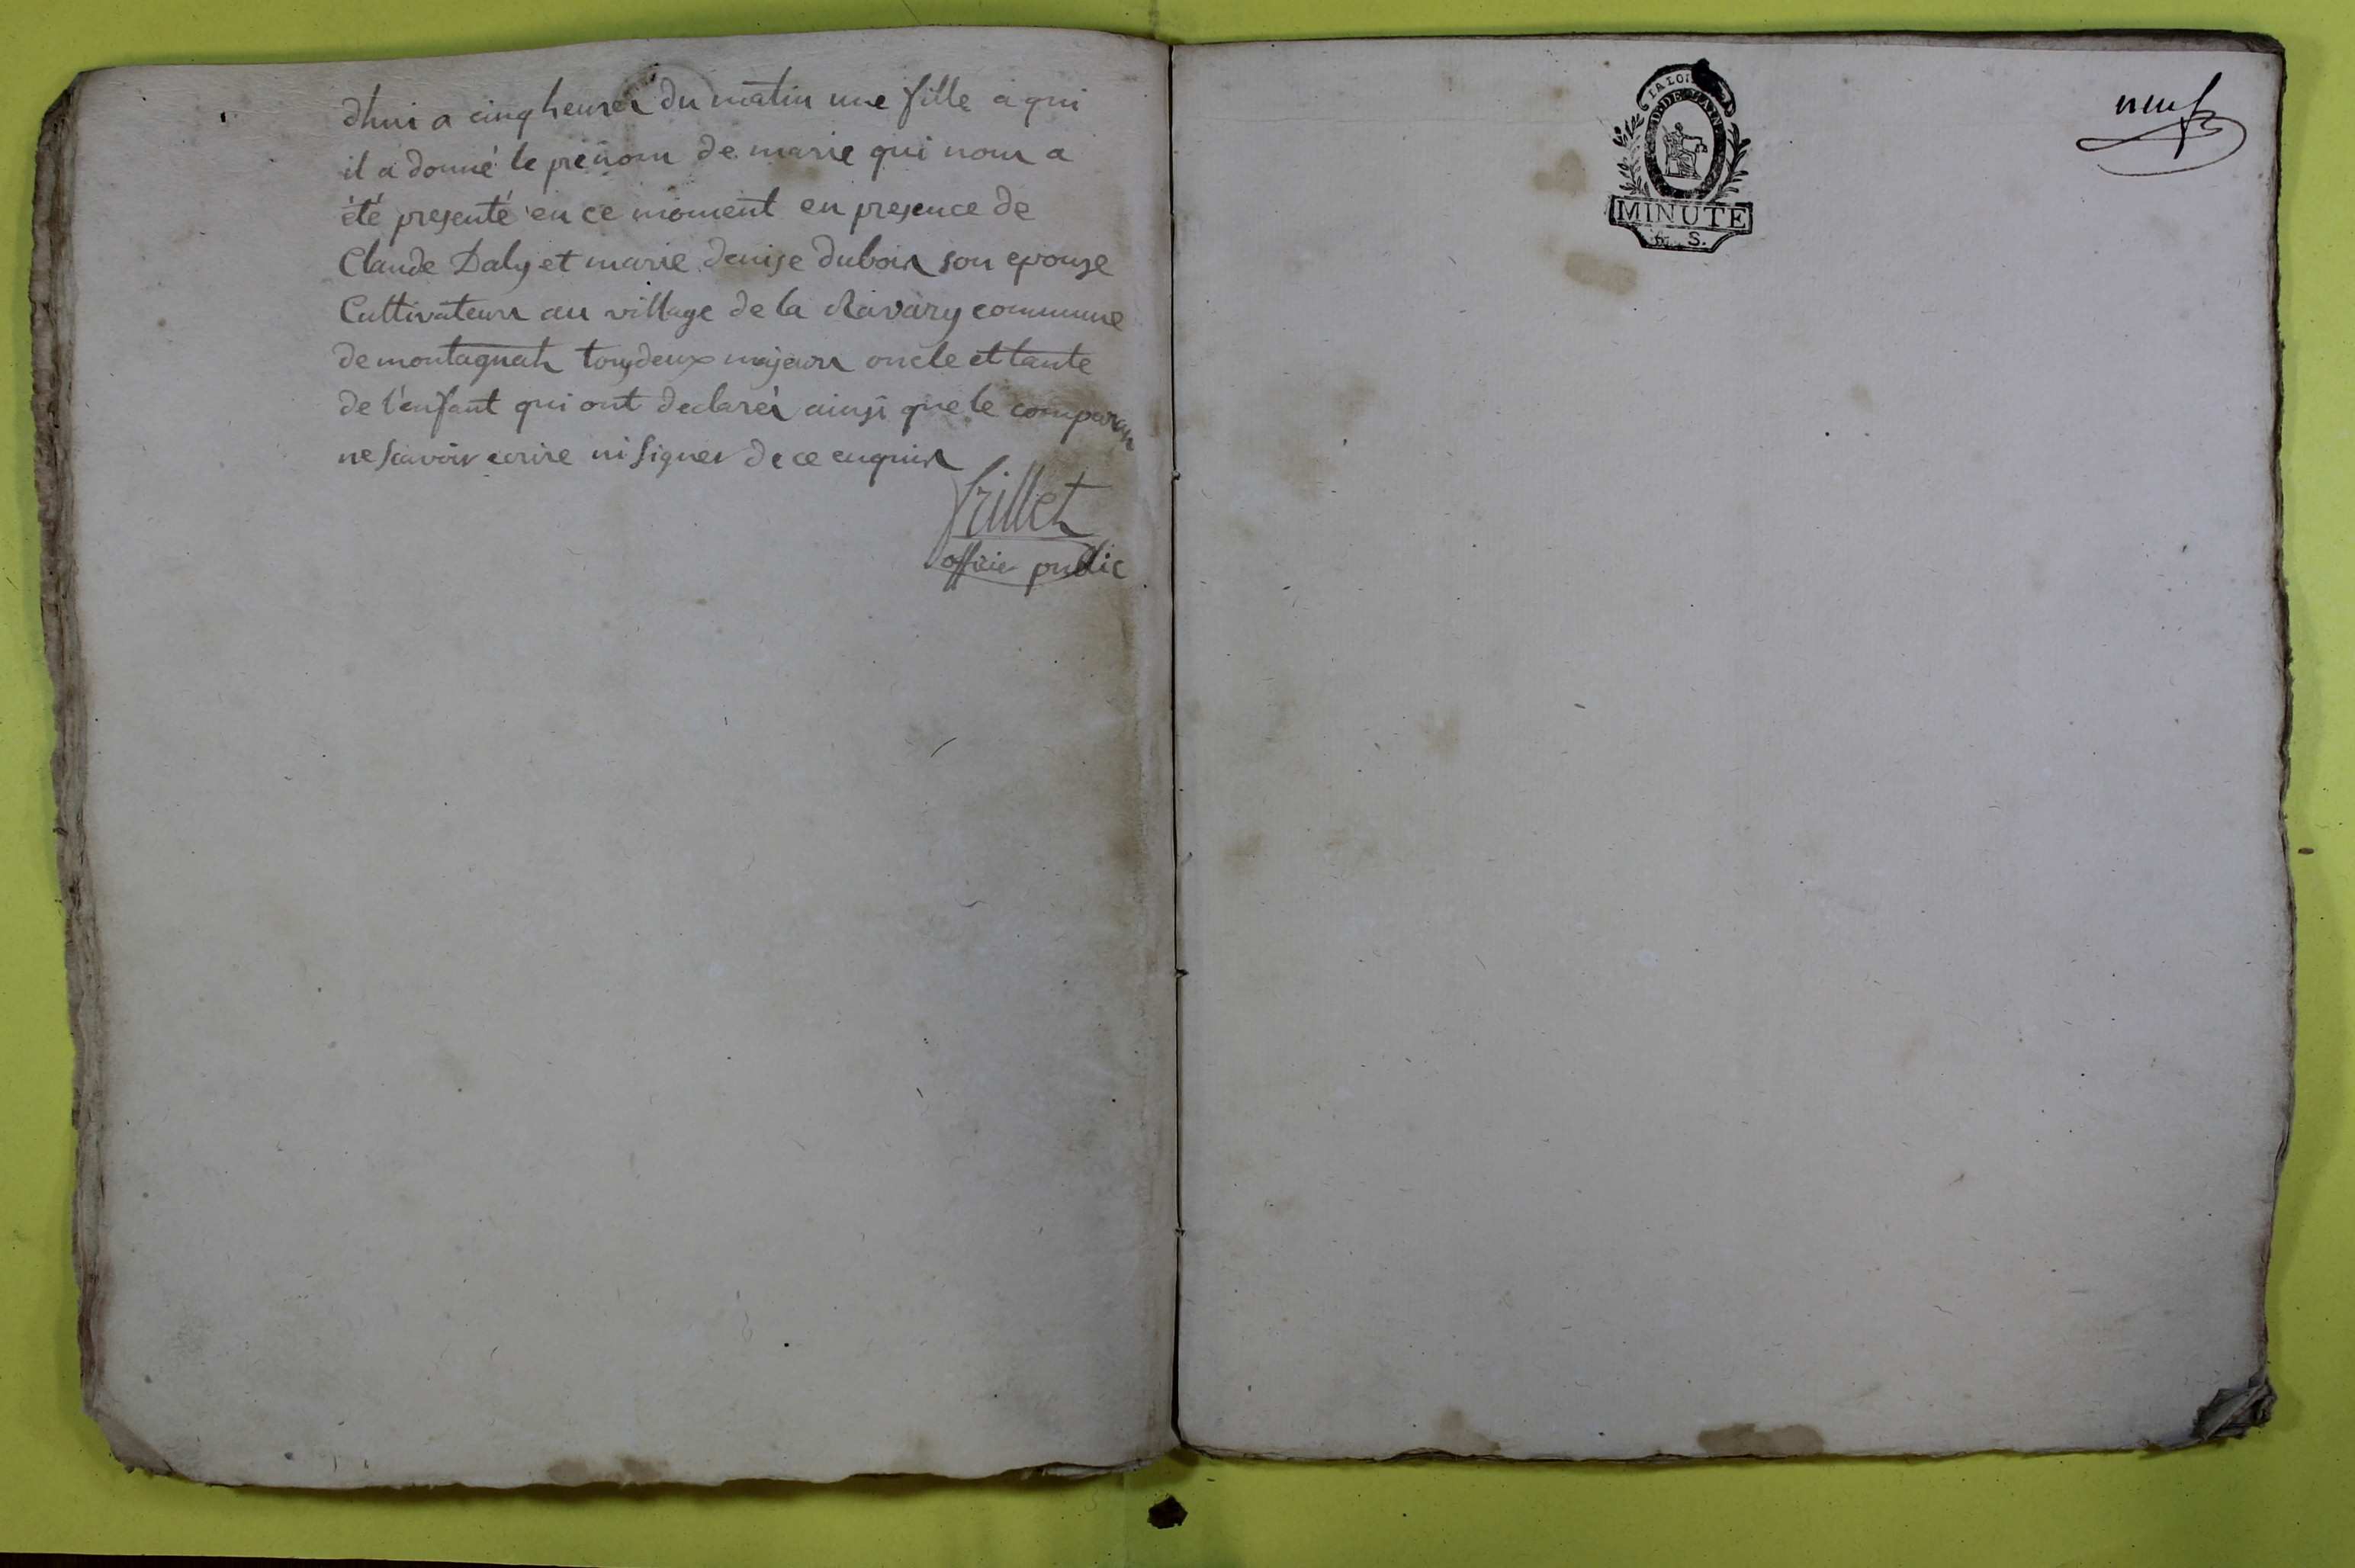 dhui a cinq heures du matin une fille a qui
il a donné le prénom de marie qui nous a
été presenté en ce moment en presence de
Claude Daly et marie denise dubois son epouse
Cultivateurs au village de la Ravary commune
de montagnat tous deux majeurs oncle et tante
de l'enfant qui ont declarés ainsi que le comparan
ne scavoir ecrire ni signer de ce enquis
frillet
officie public
LA LOI
MINUTE
S.
neuf